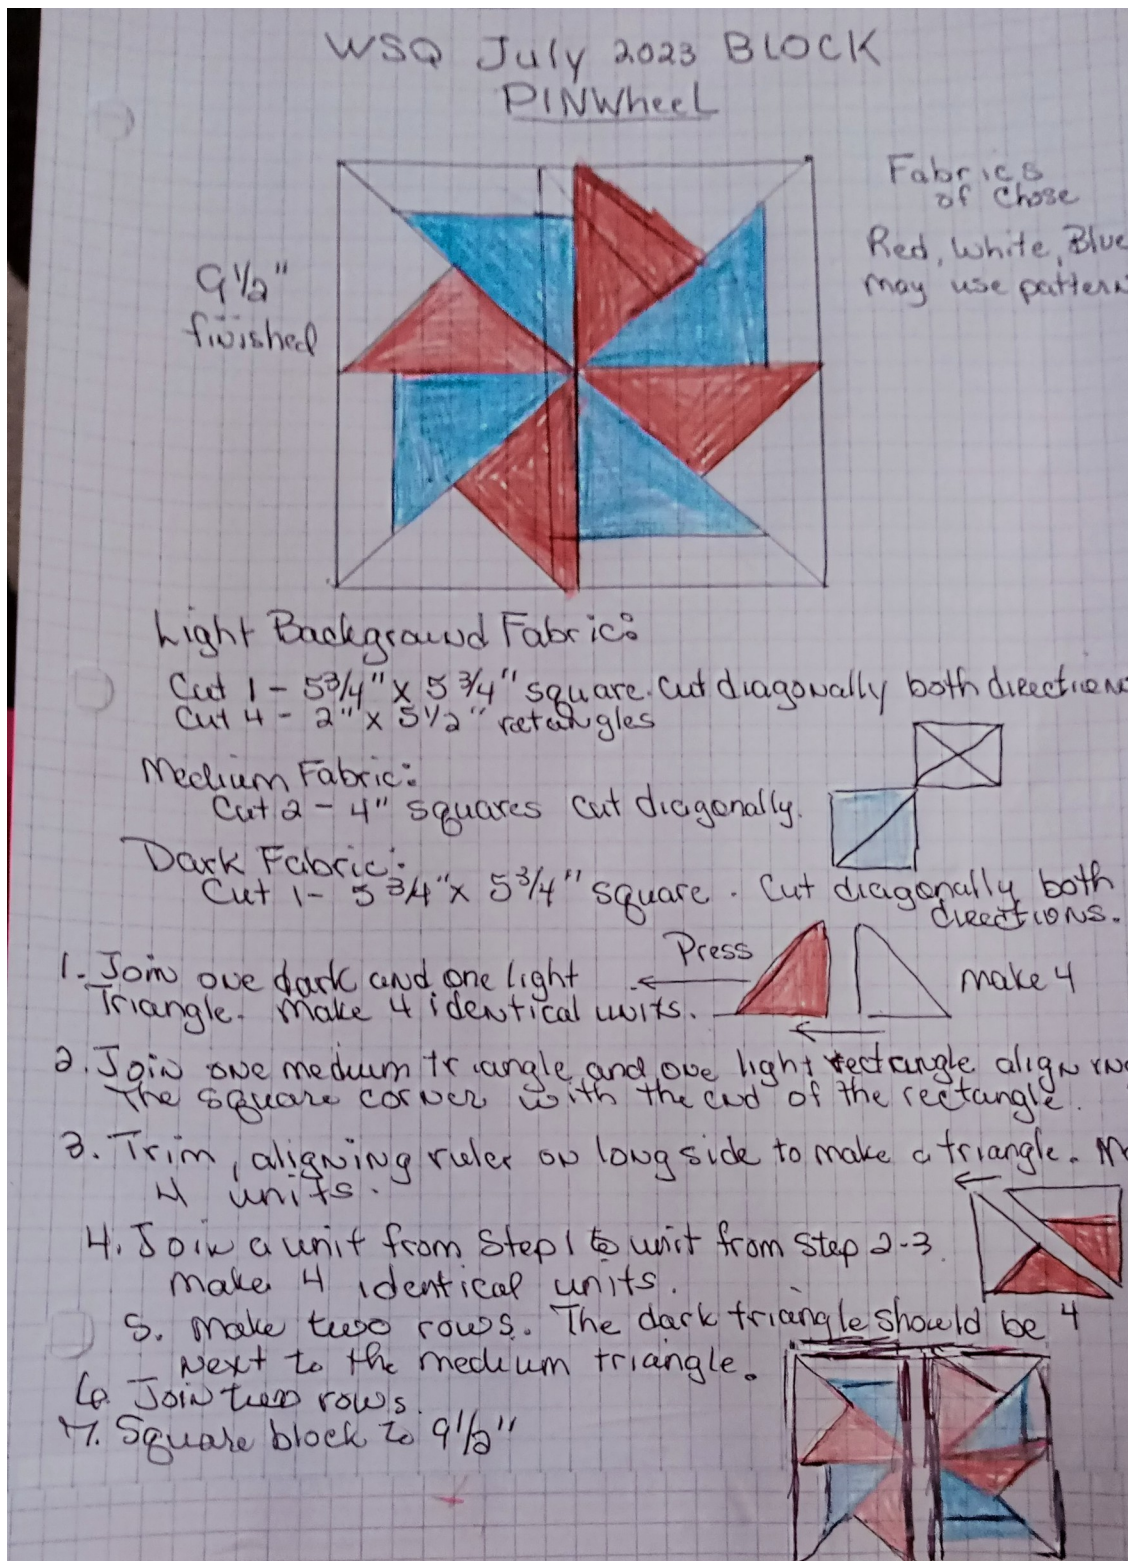 WSQ July 2023 BLOCK
PINWheel
Fabrics
of Chose
Red, White, Blue
may use pattern
9 1/2"
finished
Light Background Fabric:
Cut 1 - 5 3/4" x 5 3/4" square. Cut diagonally both direction
Cut 4 - 2" x 5 1/2" retangles
Medium Fabric:
Cut 2 - 4" squares cut diagonally.
Dark Fabric:
Cut 1 - 5 3/4" x 5 3/4" square. Cut diagonally both
directions.
1. Join one dark and one light
Triangle. Make 4 identical units.
Press
make 4
2. Join one medium triangle and one light rectangle aligning
the square corner with the end of the rectangle.
3. Trim, aligning ruler on long side to make a triangle. M
4 units.
4. Join a unit from Step 1 to unit from Step 2-3.
Make 4 identical units.
4
5. Make two rows. The dark triangle should be
next to the medium triangle.
6. Join two rows.
7. Square block to 9 1/2"